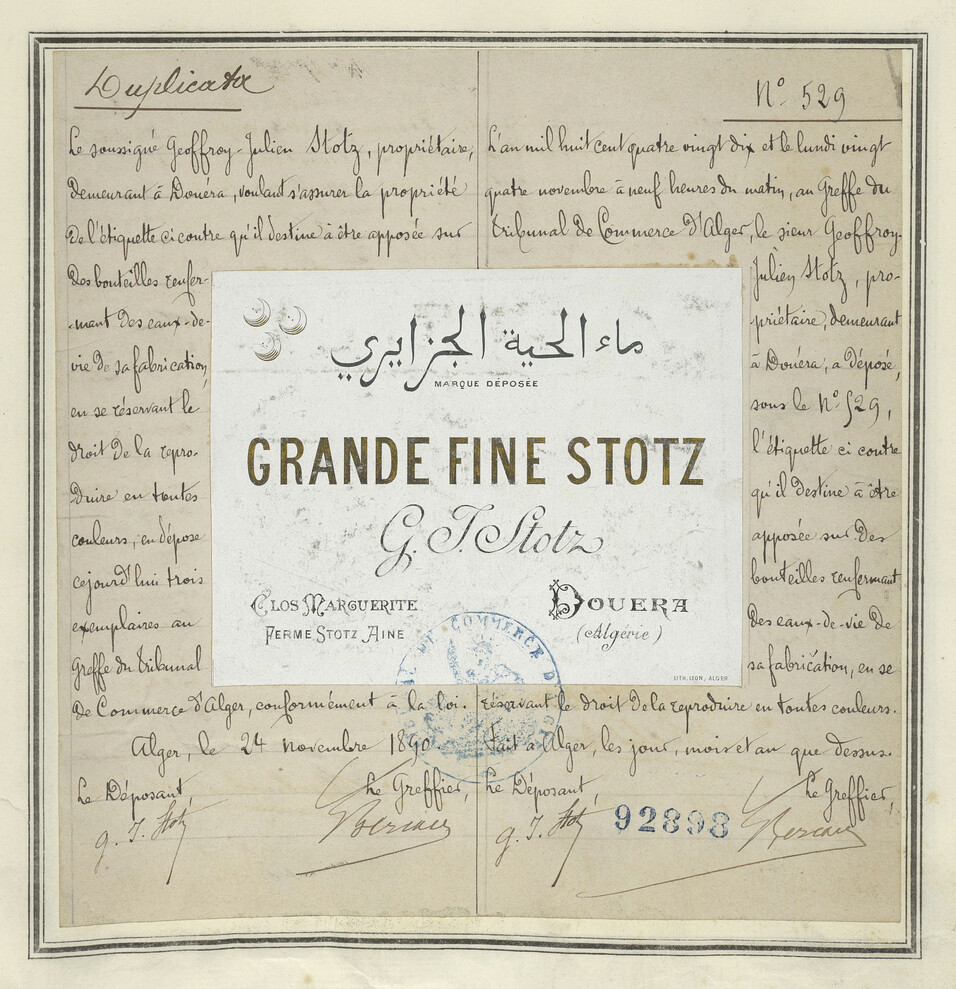 Duplicata
Le soussigné Geoffroy-Julien Stotz, propriétaire,
demeurant à Douéra, voulant s'assurer la propriété
de l'étiquette ci contre qu'il destine à être apposée sur
des bouteilles renfer-
-mant des eaux-de-
vie de sa fabrication,
en se réservant le
droit de la repro-
duire en toutes
couleurs, en dépose
cejourd'hui trois
exemplaires au
Greffe du tribunal
de Commerce d'Alger, conformément à la loi.
Alger, le 24 novembre 1890
Le Déposant,
Le Greffier,
G. J. Stotz
N° 529
L'an mil huit cent quatre vingt dix et le lundi vingt
quatre novembre à neuf heures du matin, au Greffe du
tribunal de Commerce d'Alger, le sieur Geoffroy-
Julien Stotz, pro-
priétaire, demeurant
à Douéra, a déposé,
sous le N° 529,
l'étiquette ci contre
qu'il destine à être
apposée sur des
bouteilles renfermant
des eaux-de-vie de
sa fabrication, en se
réservant le droit de la reproduire en toutes couleurs.
Fait à Alger, les jour, mois et an que dessus.
Le Déposant,
Le Greffier,
G. J. Stotz
92898
ماء الحية الجزايري
MARQUE DÉPOSÉE
GRANDE FINE STOTZ
G. J. Stotz
CLOS MARGUERITE
FERME STOTZ AINE
DOUERA
(Algérie)
LITH. LION, ALGER
COMMERCE